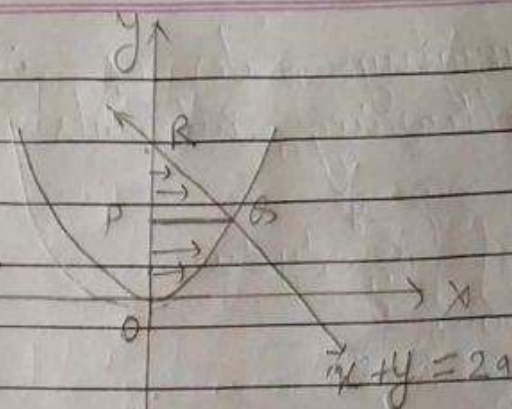 y
R
P Q
X
O
x + y = 2a